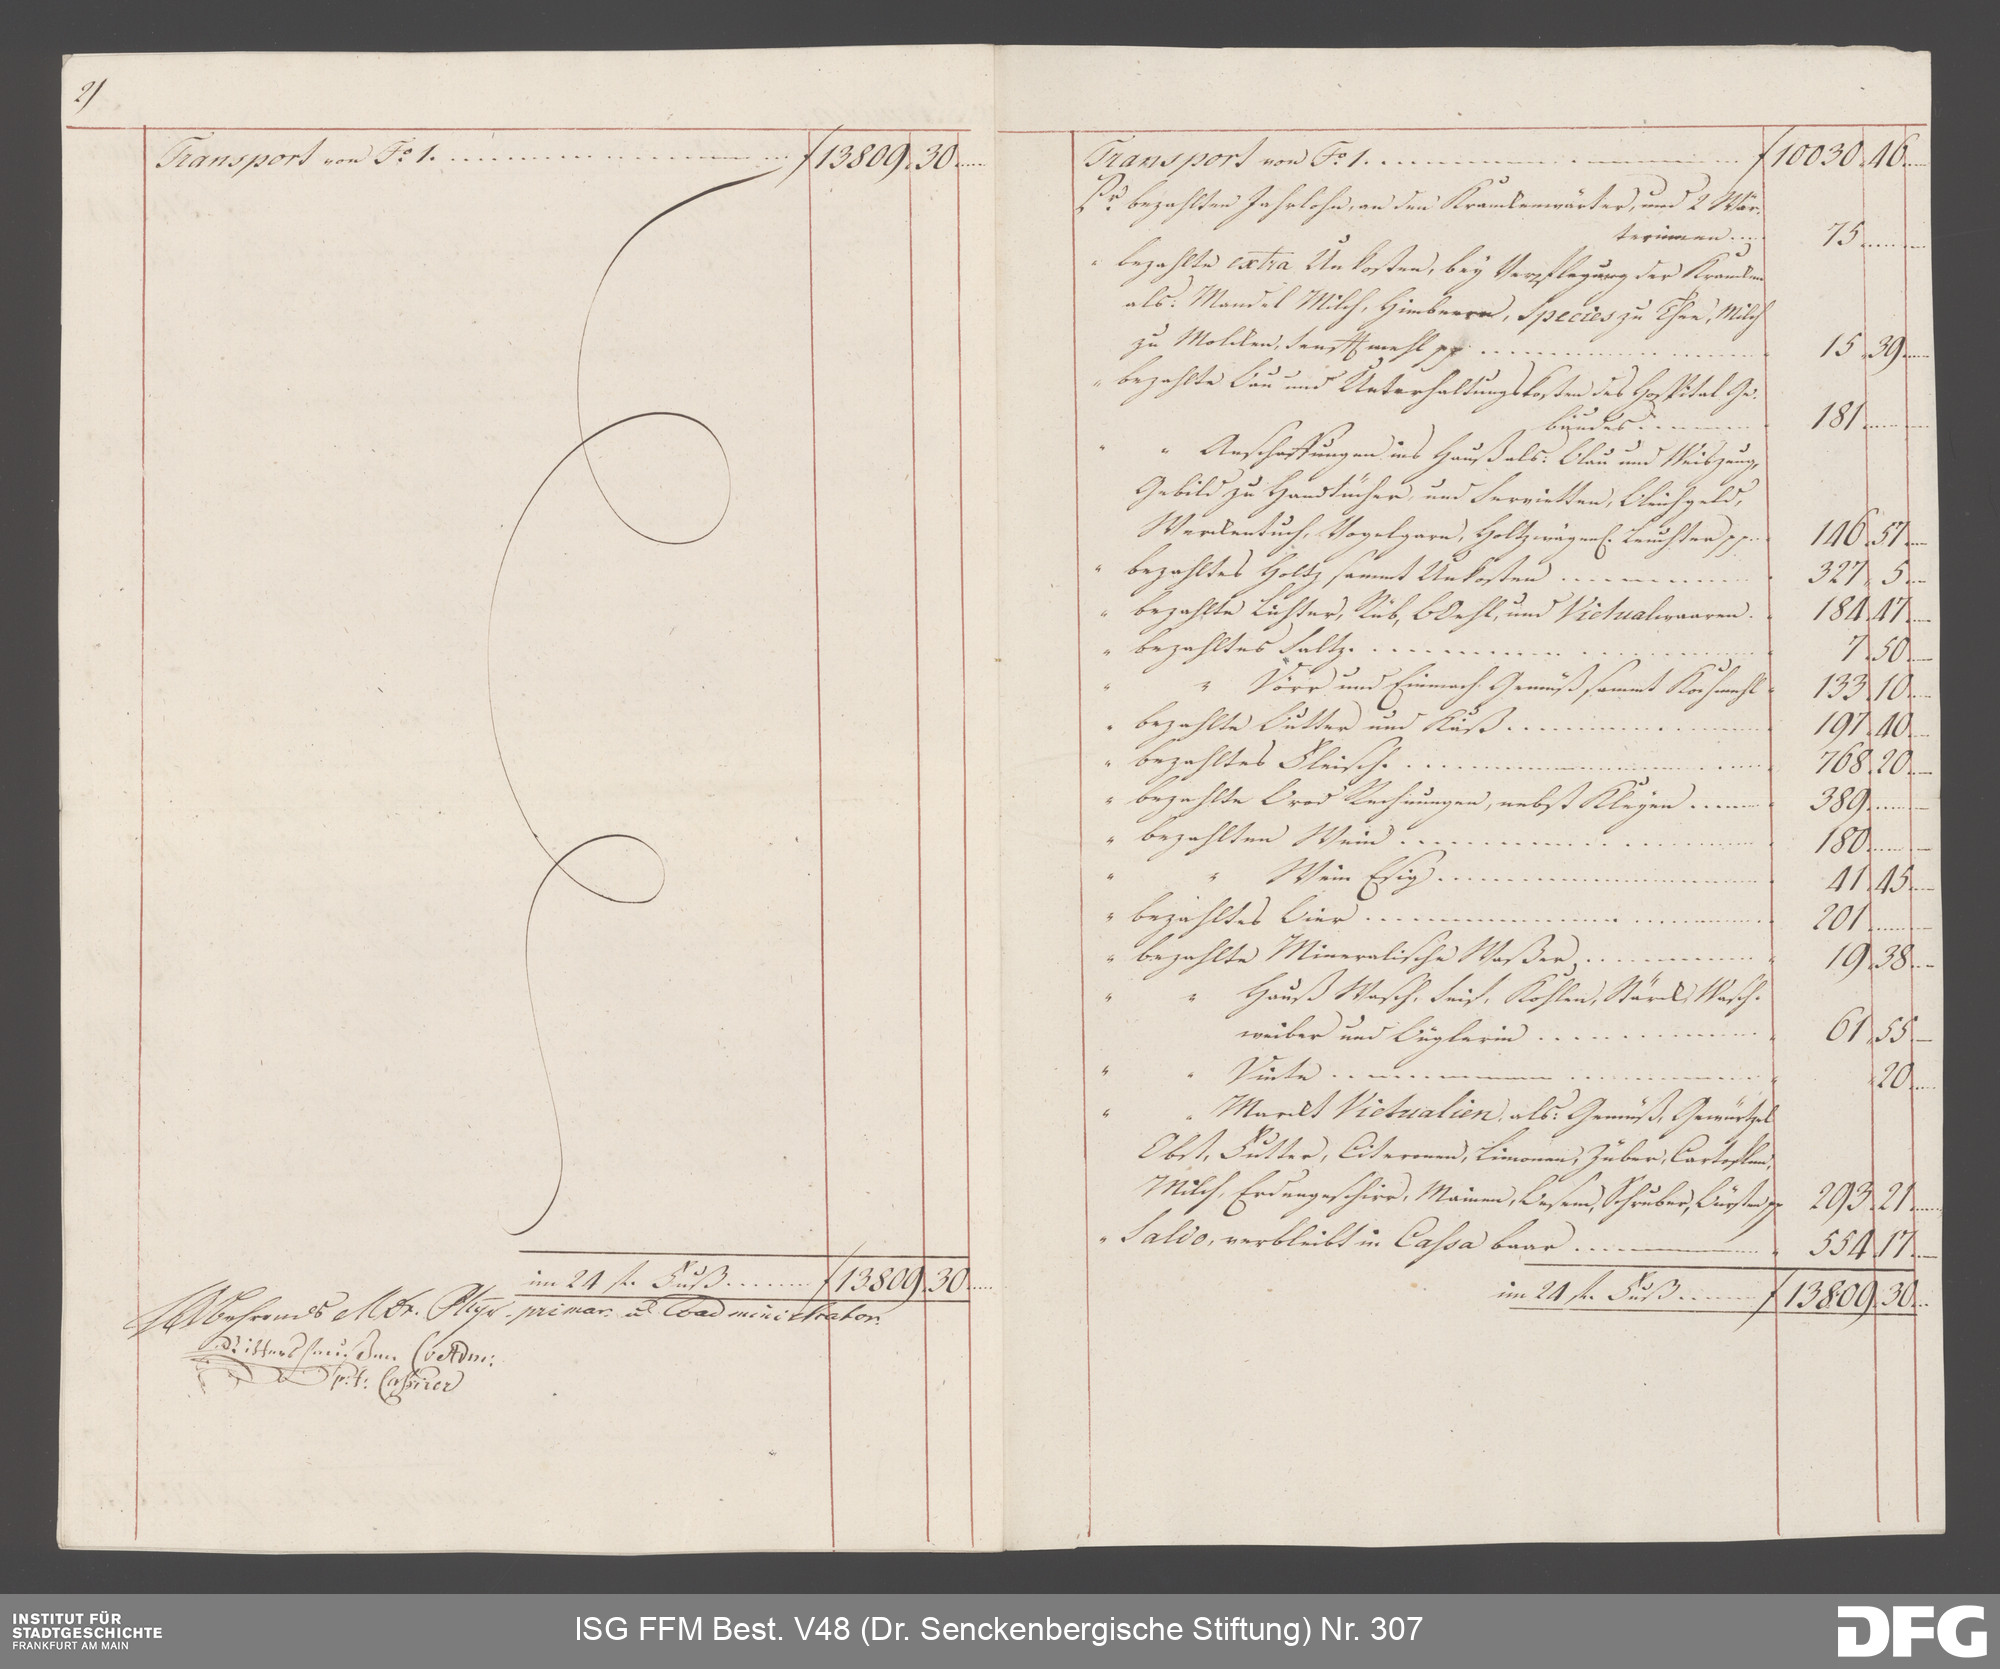 2/
Transport von Fo. 1. f 13809. 30.
im 24 fl. Fuß f 13809. 30.
Behrends MDr. Phys. primar. u. Coadministrator.
Rittershausen CoAdm:
p. t. Cassirer
Transport von Fo. 1. f 10030. 46.
Pr. bezahlten Jahrlohn, an den Krankenwärter, und 2 Wär-
terinnen 75
" bezahlte extra Unkosten, bey Verpflegung der Krancken
als: Mandel Milch, Himbeern, Species zu Thee, Milch
zu Molcken, Senffmehl pp 15. 39.
" bezahlte Bau und Unterhaltungskosten des Hospital Ge-
bäudes 181
" " Anschaffungen ins Hauß als: Blau und Weiszeug,
Gebild zu Handtücher und Servietten, Bleichgeld,
Werckentuch, Vogelgarn, Leuchter pp. 146. 57.
" bezahltes Holtz sammt Unkosten 327. 5.
" bezahlte Lichter, Rüb, Öehl, und Victualwaaren. 184. 47.
" bezahltes Saltz. 7. 50.
" " Dörr und Einmach Gemüß sammt Kochmehl 133. 10.
" bezahlte Butter und Käß 197. 40.
" bezahltes Fleisch. 768. 20.
" bezahlte Brod Rechnungen, nebst Kleyen 389.
" bezahlten Wein 180.
" " Wein Essig 41. 45.
" bezahltes Bier 201
" bezahlte Mineralische Waßer 19. 38.
" " Hauß Wasch, Seif, Kohlen, Stärck, Wasch-
weiber und Büglerin 61. 55.
" " Dinte 20.
" " Marckt Victualien, als: Gemüß, Gewürtzel
Obst, Futter, Citronen, Limonen, Züber, Cartoflen,
Milch, Erdengeschirr, Besem, Schruber, Bürsten pp 293. 21.
" Saldo, verbleibt in Cassa baar 554. 17.
im 24 fl. Fuß f 13809. 30.
INSTITUT FÜR
STADTGESCHICHTE
FRANKFURT AM MAIN
ISG FFM Best. V48 (Dr. Senckenbergische Stiftung) Nr. 307
DFG